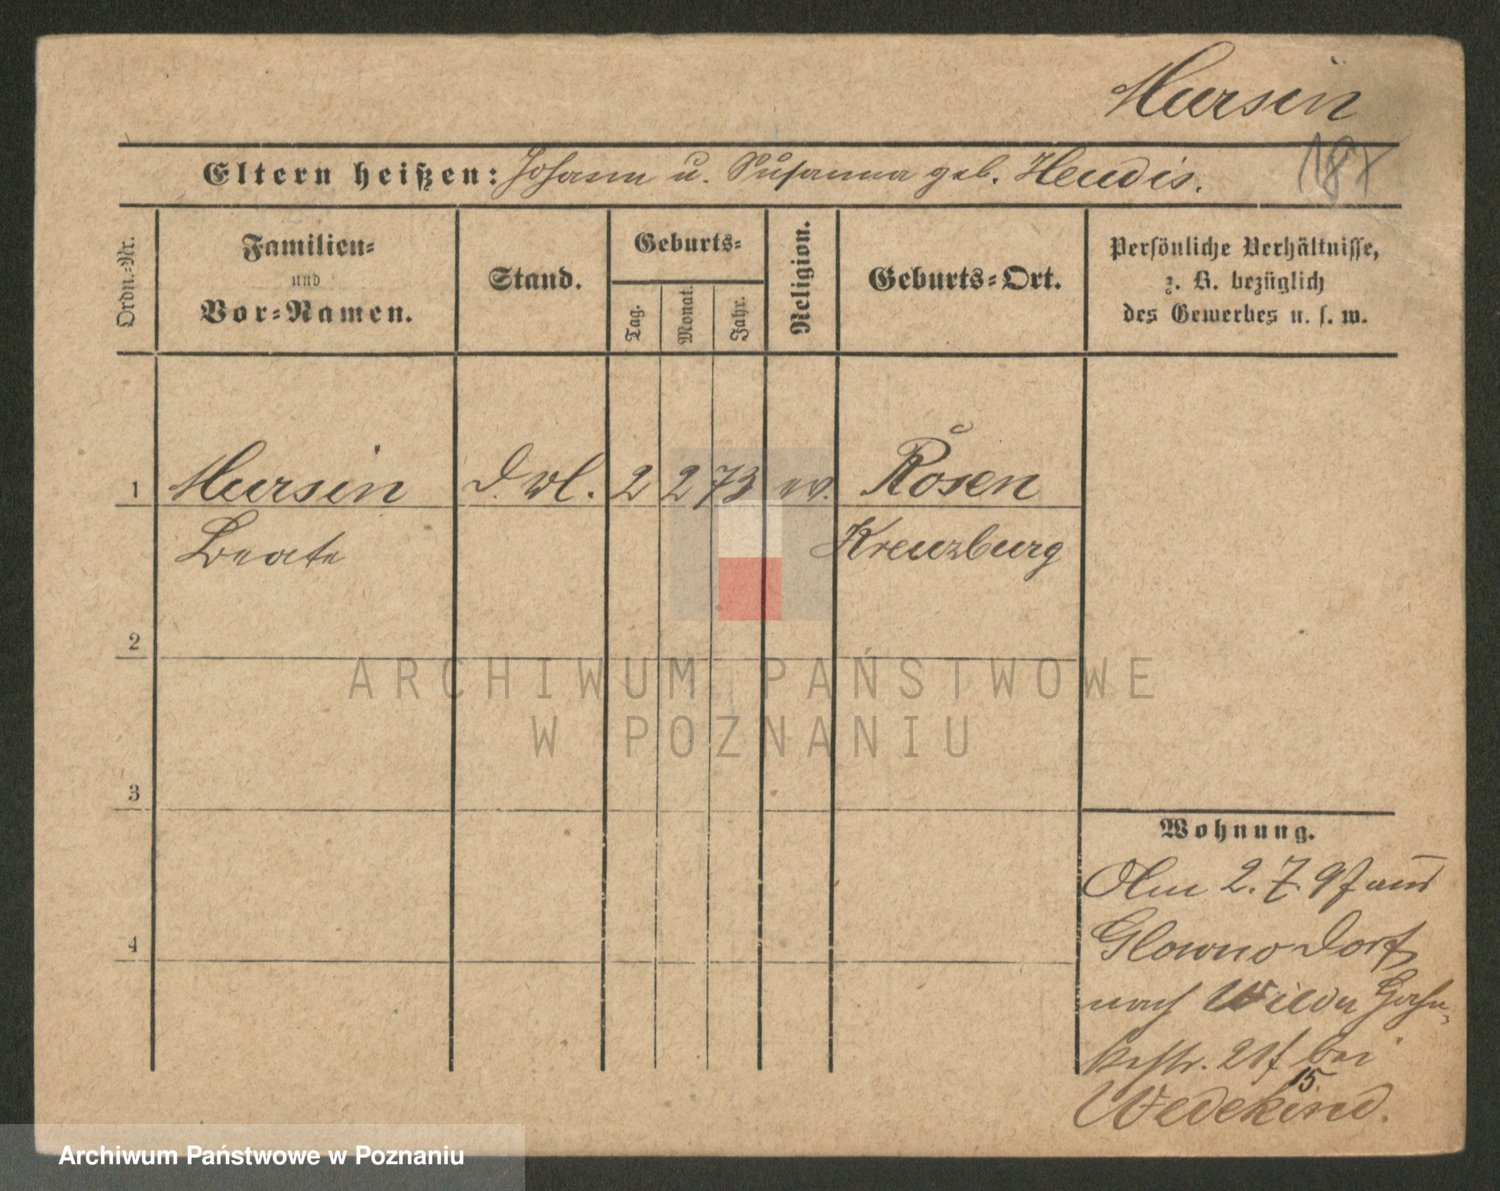 Mursin
Eltern heißen: Johann u. Susanna geb. Heudis.
187
Ordn.-Nr.
Familien-
und
Vor-Namen.
Stand.
Geburts-
Tag.
Monat.
Jahr.
Religion.
Geburts-Ort.
Persönliche Verhältnisse,
z. B. bezüglich
des Gewerbes u. s. w.
1 Mursin 2 2 73 ev. Rosen
Beate Kreuzburg
2
3
4
Wohnung.
Am 2. 7. 97 aus
Glowno Dorf
nach Wilda
bei
15
Wedekind.
ARCHIWUM PAŃSTWOWE
W POZNANIU
Archiwum Państwowe w Poznaniu